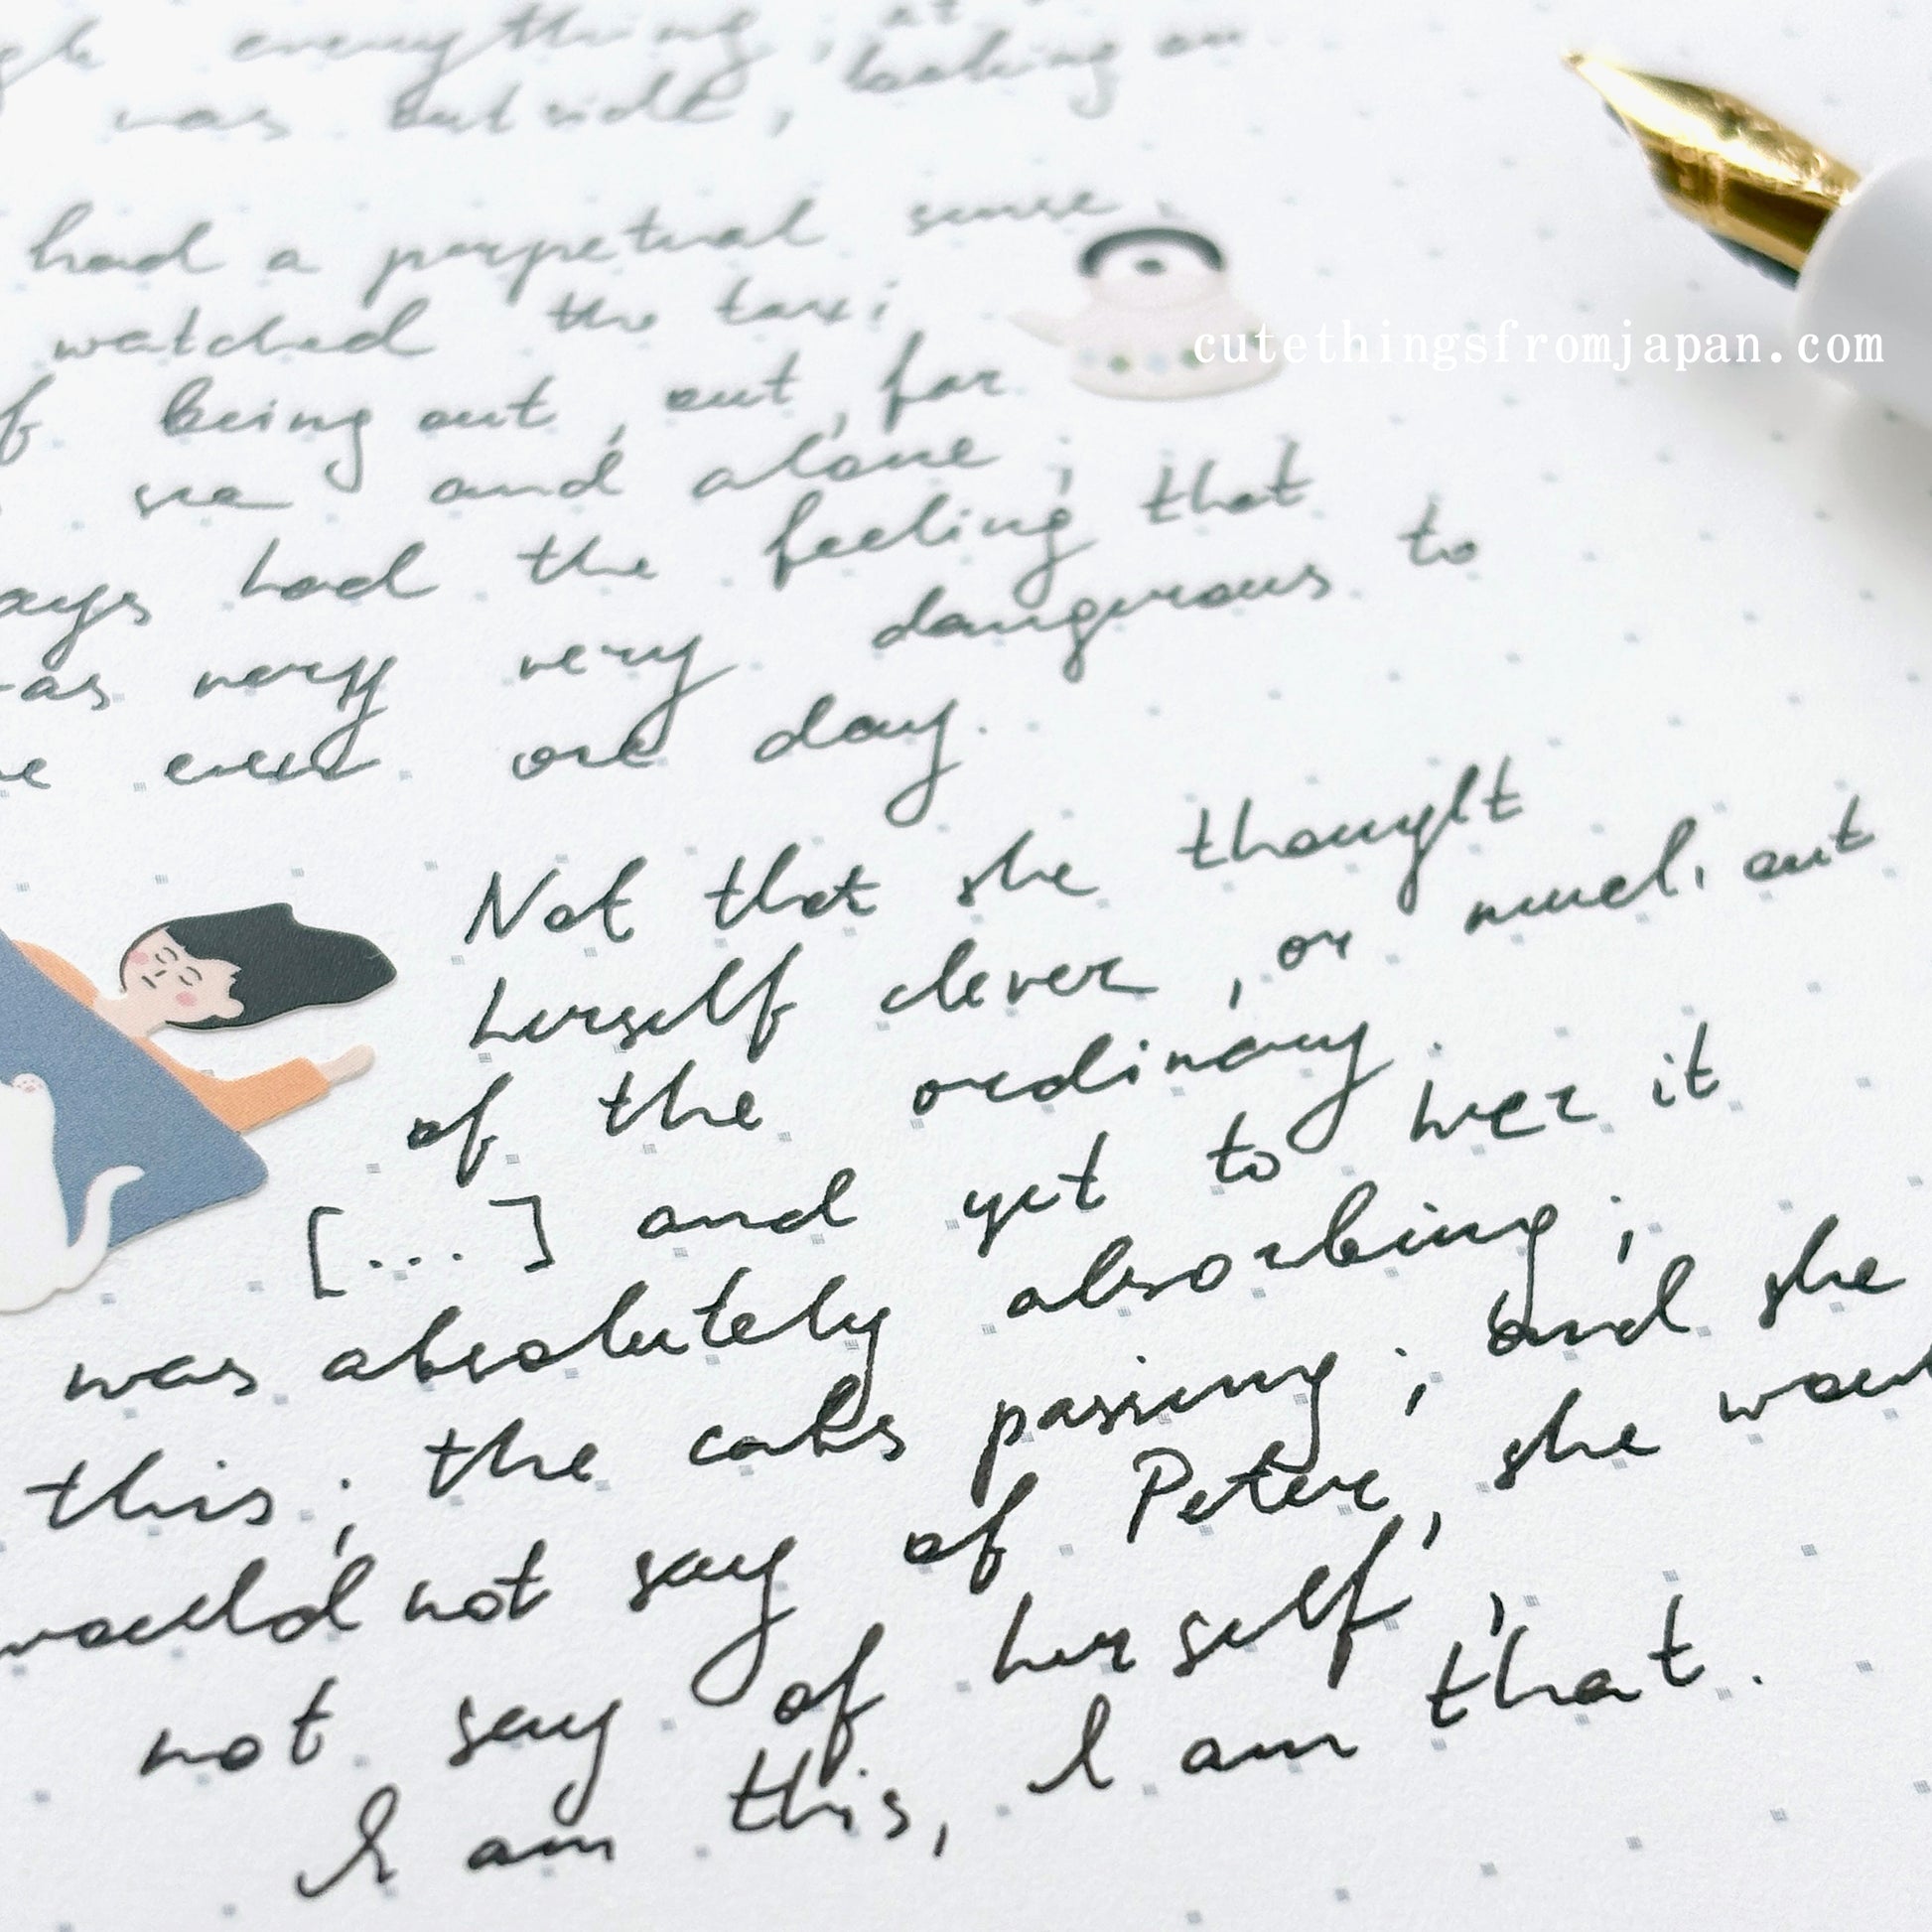 everything, at
was outside, looking on
had a perpetual sense
watched the taxi
being out, out, far
sea and alone;
had the feeling that
very very dangerous to
even one day.
Not that she thought
herself clever, or much out
of the ordinary.
[...] and yet to her it
was absolutely absorbing;
this; the cabs passing; and she
would not say of Peter, she
not say of herself,
I am this, I am that.
cutethingsfromjapan.com